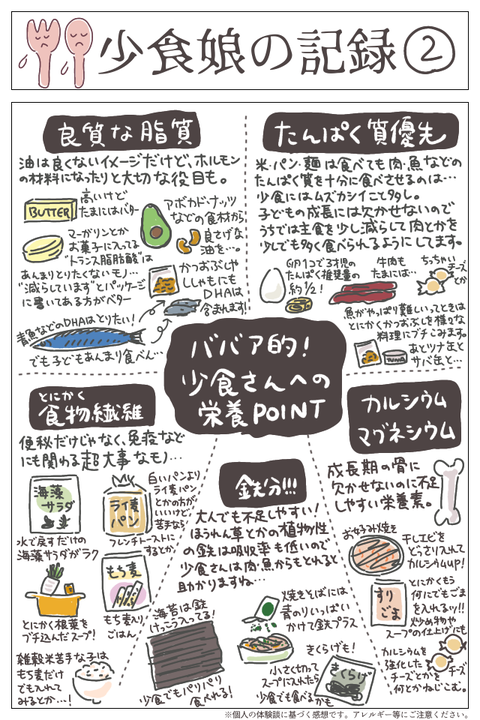 少食娘の記録②
良質な脂質
油は良くないイメージだけど、ホルモン
の材料になったりと大切な役目も。
BUTTER
高いけど
たまにはバター
アボカドナッツ
などの食材から
良さげな
油を…
マーガリンとか
お菓子に入ってる
"トランス脂肪酸"は
あんまりとりたくないモノ…
"減らしています"とパッケージ
に書いてある方がベター
かつおぶしや
ししゃもにも
DHAは
含まれます
青魚などのDHAはとりたい!
でも子どもあんまり食べん…
たんぱく質優先
米・パン・麺は食べても肉・魚などの
たんぱく質を十分に食べさせるのは…
少食にはムズカシイこと多し。
子どもの成長には欠かせないので
うちでは主食を少し減らして肉とかを
少しでも多く食べられるようにしてます。
卵1コで3才児の
たんぱく推奨量の
約1/2!
牛肉も
たまには…
ちっちゃい
チーズ
とか
魚がやっぱり難しいっときは
とにかくかつおぶしを様々な
料理にブチこみます。
あとツナ缶と
サバ缶と…
TUNA
ババア的!
少食さんへの
栄養POINT
とにかく
食物繊維
便秘だけじゃなく、免疫など
にも関わる超大事なモノ…
海藻
サラダ
水で戻すだけの
海藻サラダがラク
ライ麦
パン
白いパンより
ライ麦パン
とかの方が
いいけど
苦手なら
フレンチトーストに
するとか
とにかく根菜を
ブチ込んだスープ!
もち麦
もち麦入り
ごはん
雑穀米苦手な子は
もち麦だけ
でも入れて
みるとか…!
鉄分!!!
大人でも不足しやすい!
ほうれん草とかの植物性
の鉄は吸収率も低いので
少食さんは肉・魚からもとれると
助かりますね…
海苔は鉄
けっこう入ってる!
少食でもパリパリ
食べれる!
焼きそばには
青のりいっぱい
かけて鉄プラス
きくらげも!
小さく切って
スープに入れたら
少食でも食べるかも
きくらげ
カルシウム
マグネシウム
成長期の骨に
欠かせないのに不足
しやすい栄養素。
お好み焼きを
干しエビを
どっさり入れて
カルシウムup!
すり
ごま
とにかくもう
何にでもごま
を入れるッ!!
炒め物や
スープの仕上げにも
カルシウムを
強化した
チーズとかを
何とかねじこむ。
チーズ
※個人の体験談に基づく感想です。アレルギー等にご注意ください。